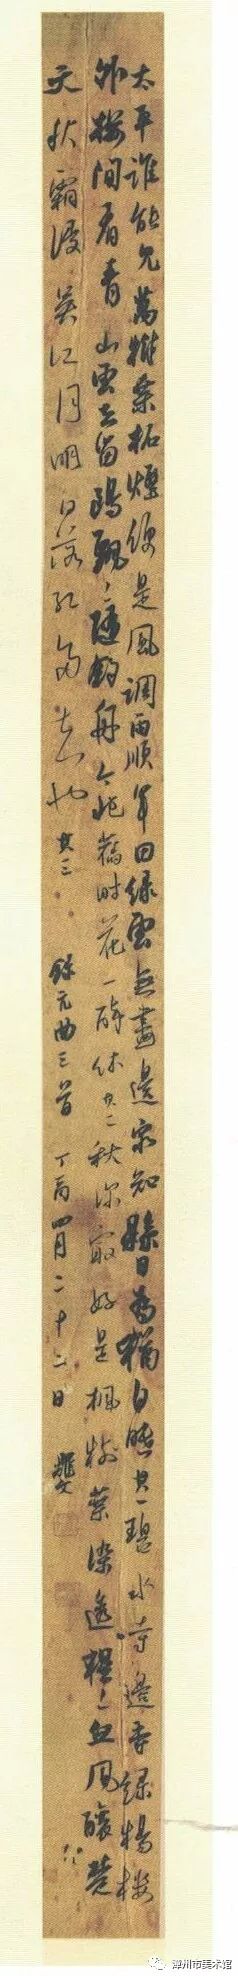 太平誰能見萬村桑柘煙便是風調雨順年田綠雲無盡邊窮知縣日高猶自眠其一碧水寺邊寺綠楊樓
外樓間看青山雲去留鷗飄〻隨釣舟今非舊對花一醉休其二秋深最好是楓樹葉染透猩〻血風釀楚
天秋霜浸吳江月明日落紅多去也其三 錄元曲三首 丁酉四月二十二日
漳州市美术馆